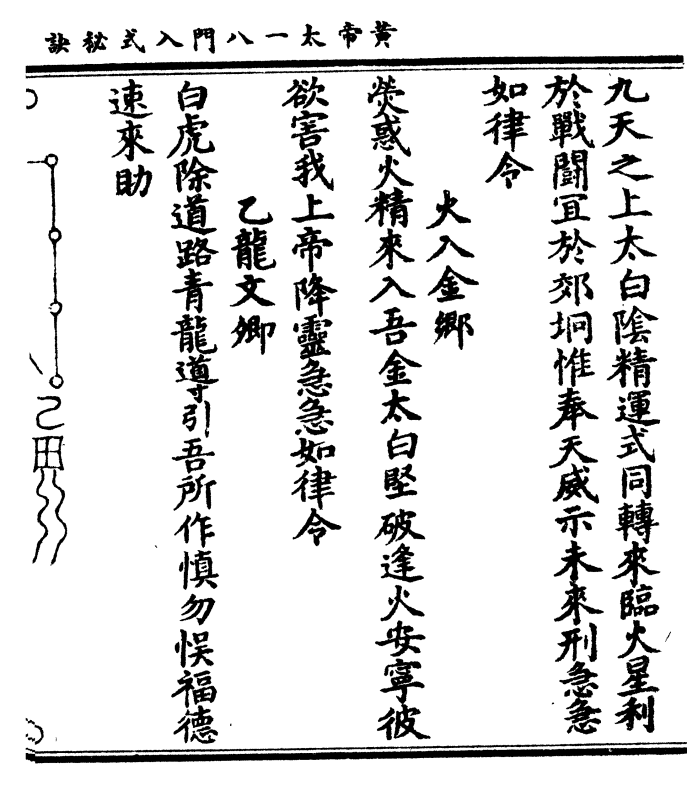 黃帝太一八門入式秘訣
九天之上太白陰精運式同轉來臨火星利
於戰鬪宜於郊坰惟奉天威示未來刑急急
如律令
火入金鄉
熒惑火精來入吾金太白堅破逢火安寧彼
欲害我上帝降靈急急如律令
乙龍文卿
白虎除道路青龍導引吾所作慎勿悮福德
速來助
乙
田